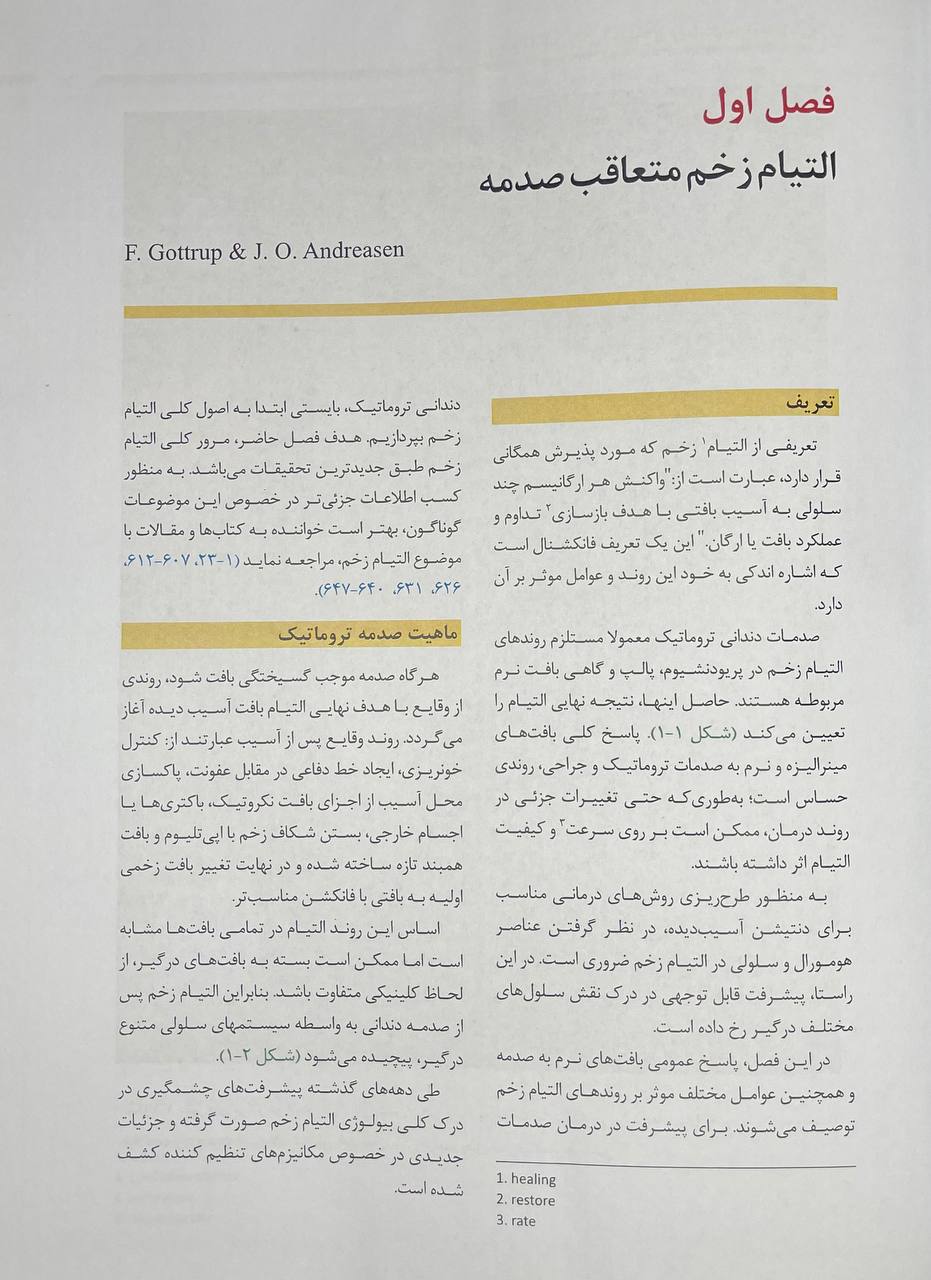 فصل اول
التیام زخم متعاقب صدمه
F. Gottrup & J. O. Andreasen
تعریف
تعریفی از التیام۱ زخم که مورد پذیرش همگانی
قرار دارد، عبارت است از:"واکنش هر ارگانیسم چند
سلولی به آسیب بافتی با هدف بازسازی۲ تداوم و
عملکرد بافت یا ارگان." این یک تعریف فانکشنال است
که اشاره اندکی به خود این روند و عوامل موثر بر آن
دارد.
صدمات دندانی تروماتیک معمولا مستلزم روندهای
التیام زخم در پریودنشیوم، پالپ و گاهی بافت نرم
مربوطه هستند. حاصل اینها، نتیجه نهایی التیام را
تعیین می‌کند (شکل ۱-۱). پاسخ کلی بافت‌های
مینرالیزه و نرم به صدمات تروماتیک و جراحی، روندی
حساس است؛ به‌طوری‌که حتی تغییرات جزئی در
روند درمان، ممکن است بر روی سرعت۳ و کیفیت
التیام اثر داشته باشند.
به منظور طرح‌ریزی روش‌های درمانی مناسب
برای دنتیشن آسیب‌دیده، در نظر گرفتن عناصر
هومورال و سلولی در التیام زخم ضروری است. در این
راستا، پیشرفت قابل توجهی در درک نقش سلول‌های
مختلف درگیر رخ داده است.
در این فصل، پاسخ عمومی بافت‌های نرم به صدمه
و همچنین عوامل مختلف موثر بر روندهای التیام زخم
توصیف می‌شوند. برای پیشرفت در درمان صدمات
1. healing
2. restore
3. rate
دندانی تروماتیک، بایستی ابتدا به اصول کلی التیام
زخم بپردازیم. هدف فصل حاضر، مرور کلی التیام
زخم طبق جدیدترین تحقیقات می‌باشد. به منظور
کسب اطلاعات جزئی‌تر در خصوص این موضوعات
گوناگون، بهتر است خواننده به کتاب‌ها و مقالات با
موضوع التیام زخم، مراجعه نماید (۱-۲۳، ۶۰۷-۶۱۲،
۶۲۶، ۶۳۱، ۶۴۰-۶۴۷).
ماهیت صدمه تروماتیک
هرگاه صدمه موجب گسیختگی بافت شود، روندی
از وقایع با هدف نهایی التیام بافت آسیب دیده آغاز
می‌گردد. روند وقایع پس از آسیب عبارتند از: کنترل
خونریزی، ایجاد خط دفاعی در مقابل عفونت، پاکسازی
محل آسیب از اجزای بافت نکروتیک، باکتری‌ها یا
اجسام خارجی، بستن شکاف زخم با اپی‌تلیوم و بافت
همبند تازه ساخته شده و در نهایت تغییر بافت زخمی
اولیه به بافتی با فانکشن مناسب‌تر.
اساس این روند التیام در تمامی بافت‌ها مشابه
است اما ممکن است بسته به بافت‌های درگیر، از
لحاظ کلینیکی متفاوت باشد. بنابراین التیام زخم پس
از صدمه دندانی به واسطه سیستمهای سلولی متنوع
درگیر، پیچیده می‌شود (شکل ۲-۱).
طی دهه‌های گذشته پیشرفت‌های چشمگیری در
درک کلی بیولوژی التیام زخم صورت گرفته و جزئیات
جدیدی در خصوص مکانیزم‌های تنظیم کننده کشف
شده است.